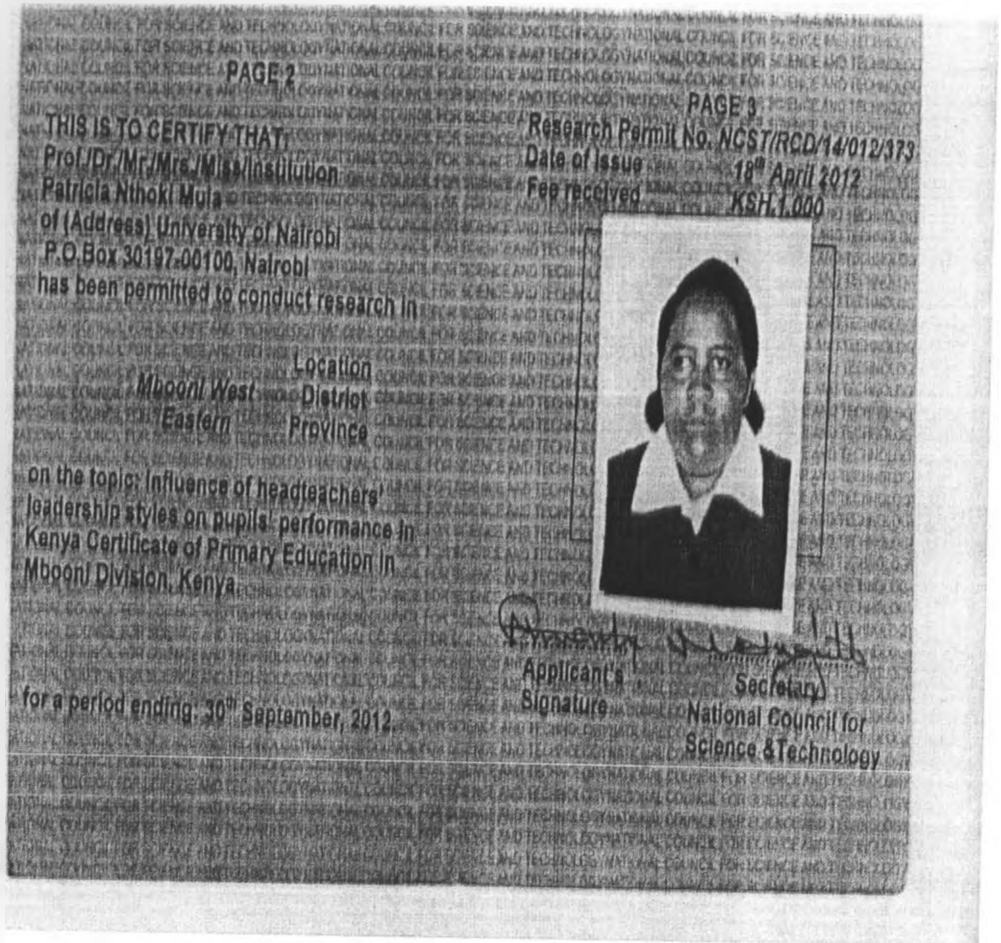 PAGE 2
THIS IS TO CERTIFY THAT:
Prof./Dr./Mr./Mrs./Miss/Institution
Patricia Nthoki Mula
of (Address) University of Nairobi
P.O.Box 30197-00100, Nairobi
has been permitted to conduct research in
Location
Mbooni West District
Eastern Province
on the topic: Influence of headteachers'
leadership styles on pupils' performance in
Kenya Certificate of Primary Education in
Mbooni Division, Kenya.
for a period ending: 30th September, 2012.
PAGE 3
Research Permit No. NCST/RCD/14/012/373
Date of issue 18th April 2012
Fee received KSH.1,000
Applicant's Secretary
Signature National Council for
Science &Technology